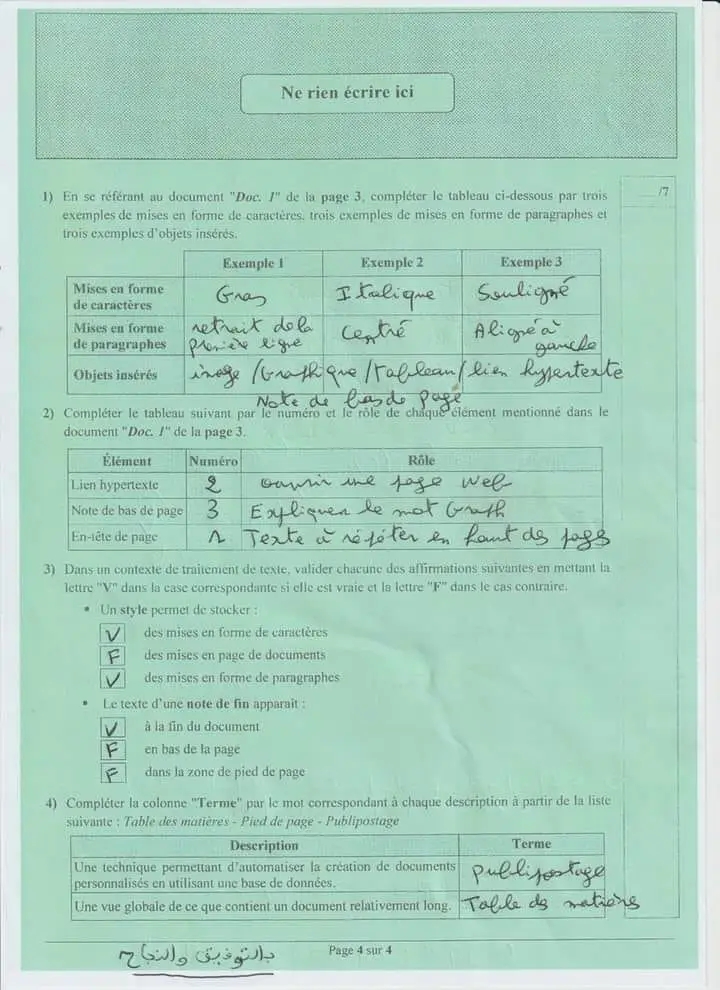 Ne rien écrire ici
/7
1) En se référant au document "Doc. 1" de la page 3, compléter le tableau ci-dessous par trois
exemples de mises en forme de caractères, trois exemples de mises en forme de paragraphes et
trois exemples d'objets insérés.
Exemple 1 Exemple 2 Exemple 3
Mises en forme
de caractères
Gras Italique Souligné
Mises en forme
de paragraphes
retrait de la
première ligne
Centré
Aligné à
gauche
Objets insérés image /Graphique/tableau/lien hypertexte
Note de bas de page
2) Compléter le tableau suivant par le numéro et le rôle de chaque élément mentionné dans le
document "Doc. 1" de la page 3.
Élément Numéro Rôle
Lien hypertexte 2 ouvrir une page web
Note de bas de page 3 Expliquer le mot Graph
En-tête de page 1 Texte à répéter en haut des pages
3) Dans un contexte de traitement de texte, valider chacune des affirmations suivantes en mettant la
lettre "V" dans la case correspondante si elle est vraie et la lettre "F" dans le cas contraire.
• Un style permet de stocker :
V des mises en forme de caractères
F des mises en page de documents
V des mises en forme de paragraphes
• Le texte d'une note de fin apparait :
V à la fin du document
F en bas de la page
F dans la zone de pied de page
4) Compléter la colonne "Terme" par le mot correspondant à chaque description à partir de la liste
suivante : Table des matières - Pied de page - Publipostage
Description Terme
Une technique permettant d'automatiser la création de documents
personnalisés en utilisant une base de données.
publipostage
Une vue globale de ce que contient un document relativement long. Table des matières
Page 4 sur 4
بالتوفيق والنجاح